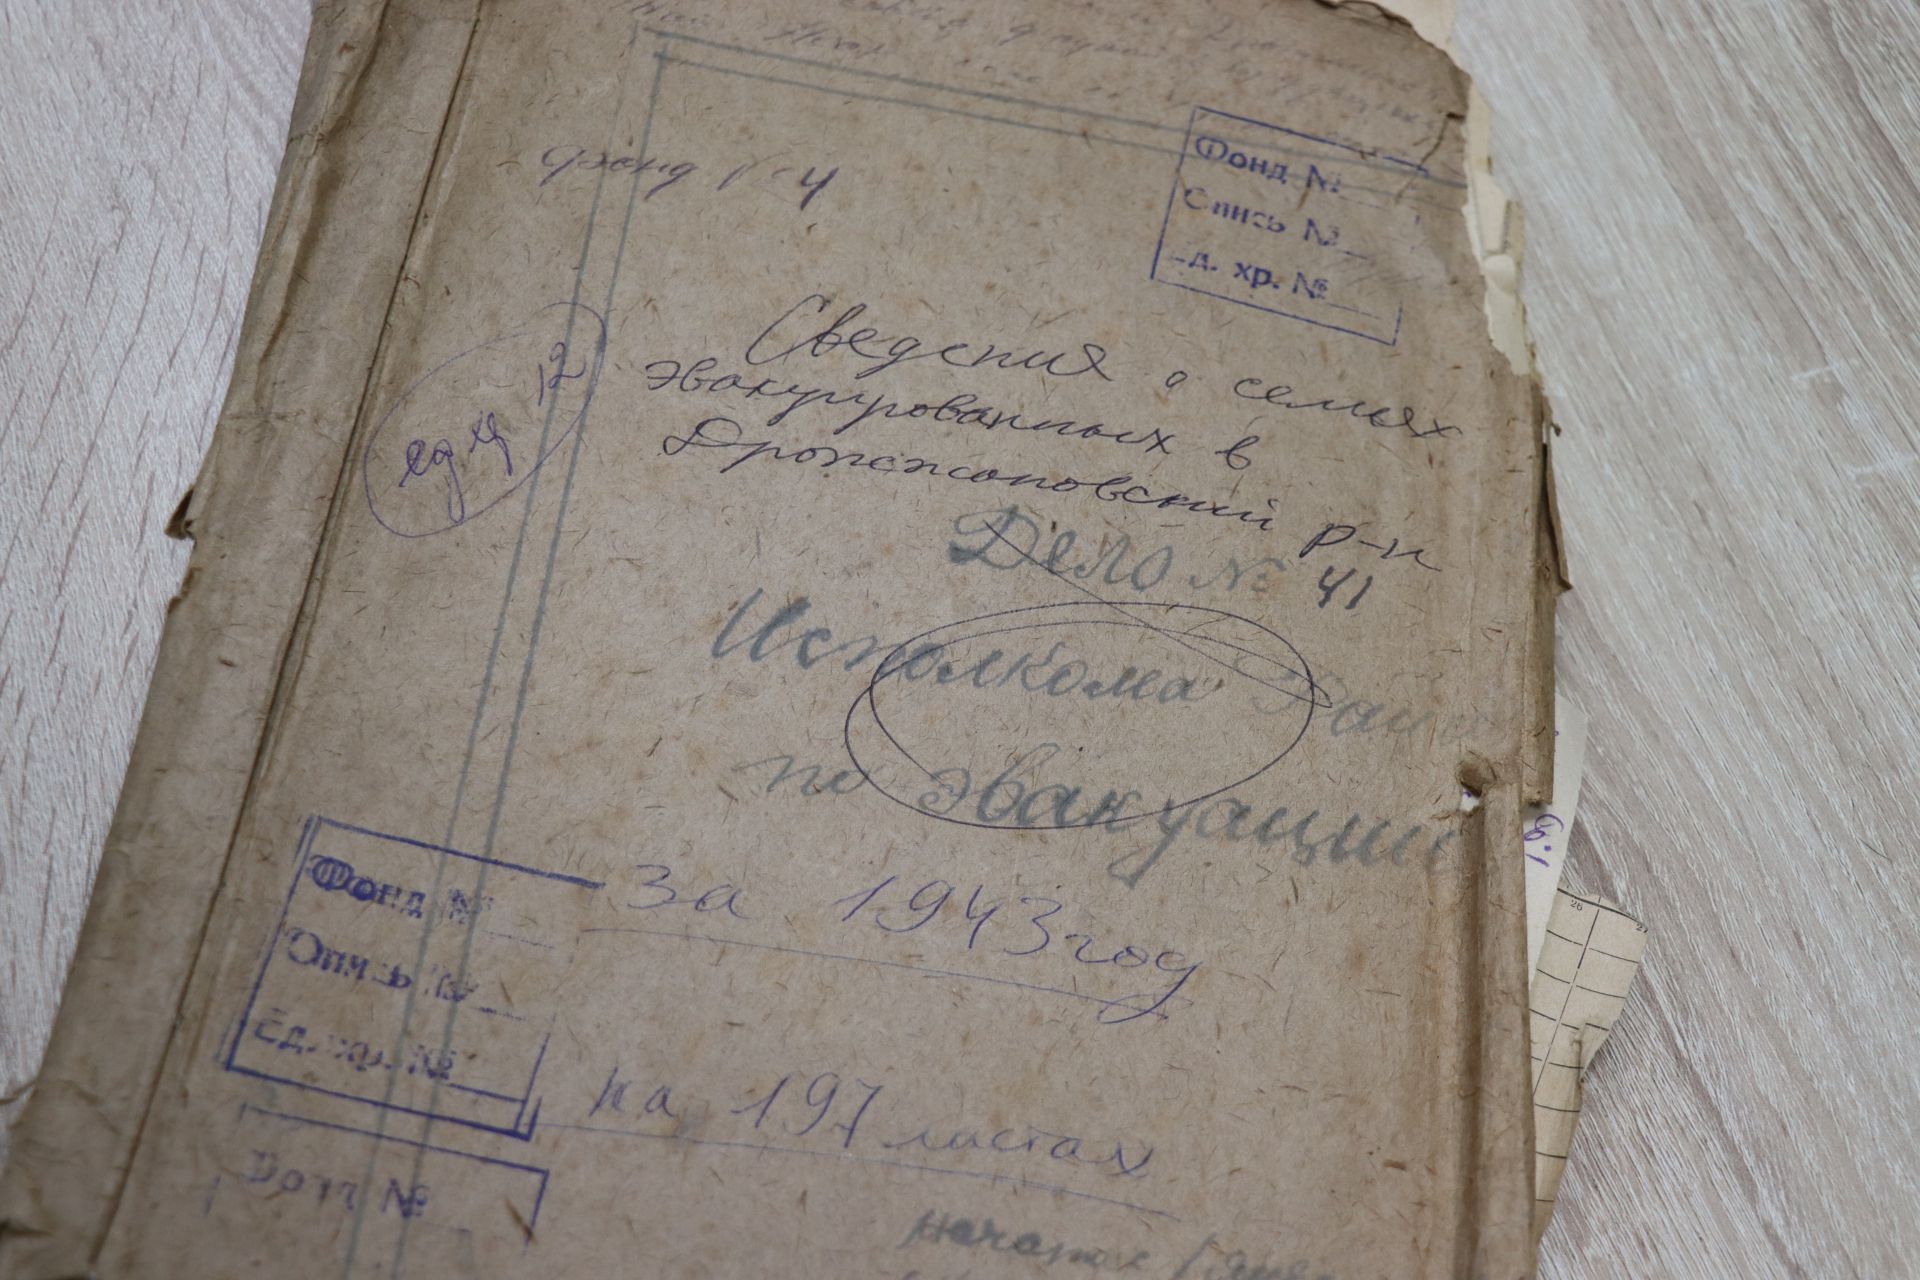 фонд №4
Фонд №
Опись №
Ед. хр. №
Сведения о семьях
эвакуированных в
Дрожжановский р-н
ед 12
Дело № 41
Исполкома Рай
по эвакуации
за 1943 год
на 197 листах
Фонд №
Опись №
Ед. хр. №
Фонд №
Начато